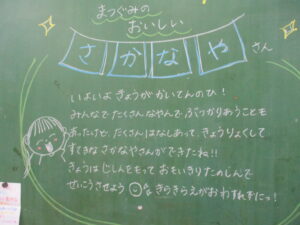 まつぐみの
おいしい
さかなやさん
いよいよ きょうが かいてんのひ!
みんなで たくさん なやんで、ぶつかりあうことも
あったけど、たくさん はなしあって、きょうりょくして
すてきな さかなやさんが できたね!!
きょうは じしんをもって おもいきりたのしんで
せいこうさせよう な きらきらえがおわすれずにっ!